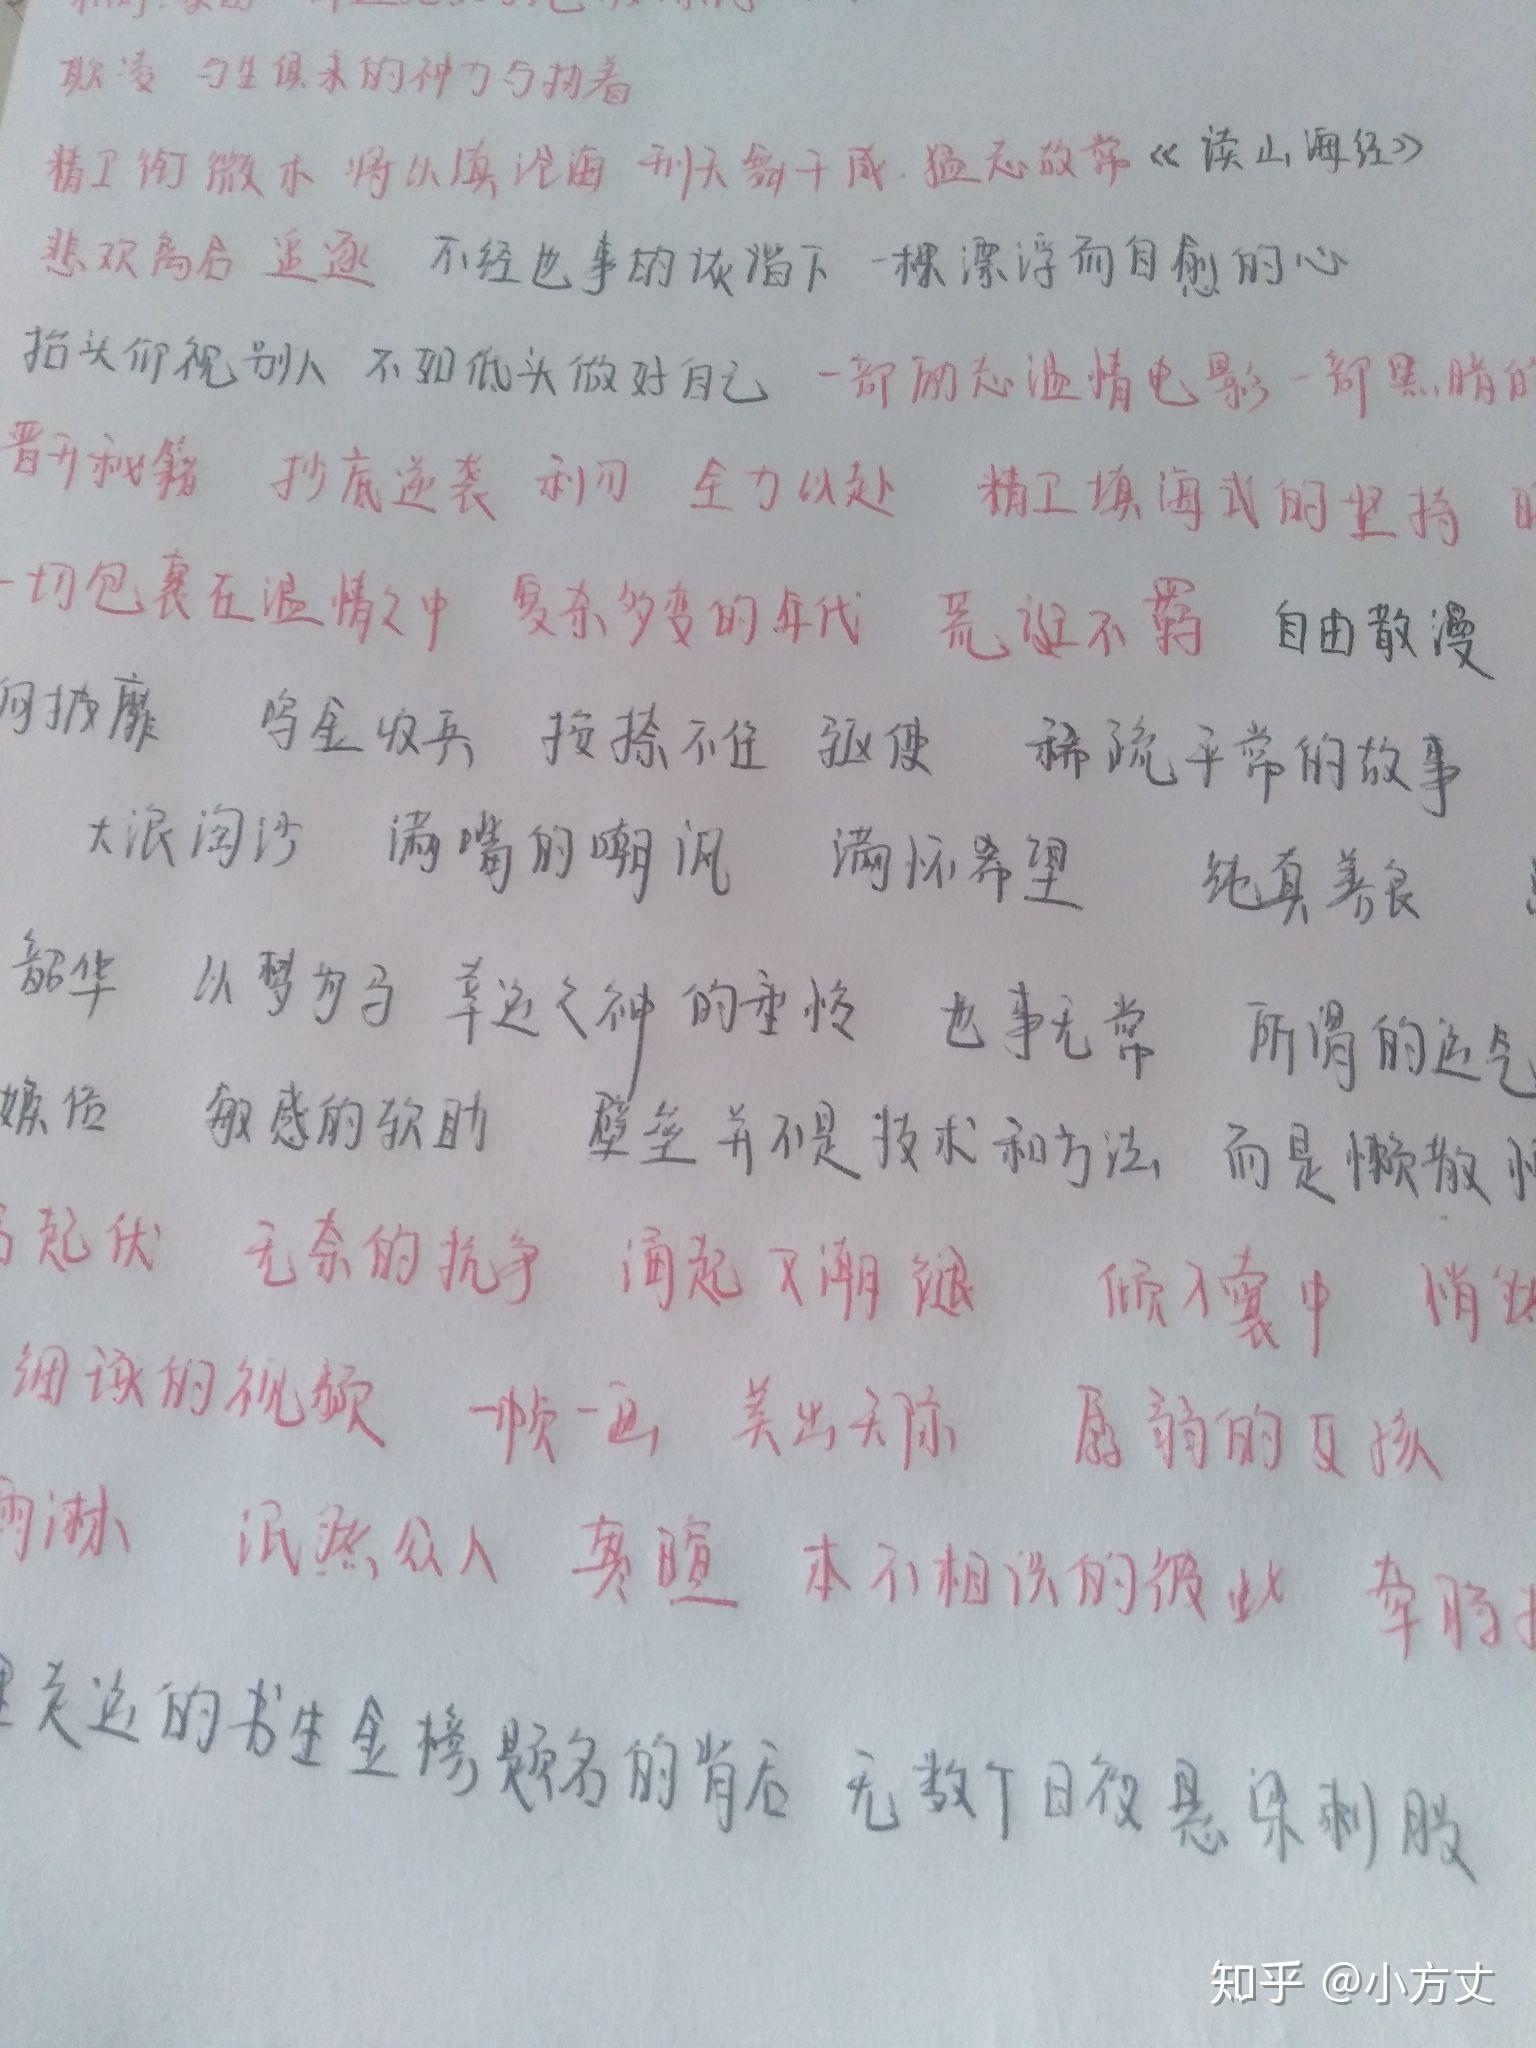 欺凌 与生俱来的神力与执着
精卫衔微木 将以填沧海 刑天舞干戚 猛志故常《读山海经》
悲欢离合 追逐 不经世事的诙谐下 一棵漂浮而自愈的心
抬头仰视别人 不如低头做好自己 一部励志温情电影 一部黑暗的
晋升秘籍 抄底逆袭 利刃 全力以赴 精卫填海式的坚持
一切包裹在温情之中 复杂多变的年代 荒诞不羁 自由散漫
披靡 鸣金收兵 按捺不住 驱使 稀疏平常的故事
大浪淘沙 满嘴的嘲讽 满怀希望 纯真善良
韶华 以梦为马 幸运之神的垂怜 世事无常 所谓的运气
敏感的软肋 壁垒并不是技术和方法 而是懒散
起伏 无奈的抗争 涌起又潮褪 倾囊中
细读的视频 一帧一画 美出天际 孱弱的女孩
雨淋 泯然众人 寒暄 本不相识的彼此 牵肠
走运的书生金榜题名的背后 无数个日夜悬梁刺股
知乎 @小方丈